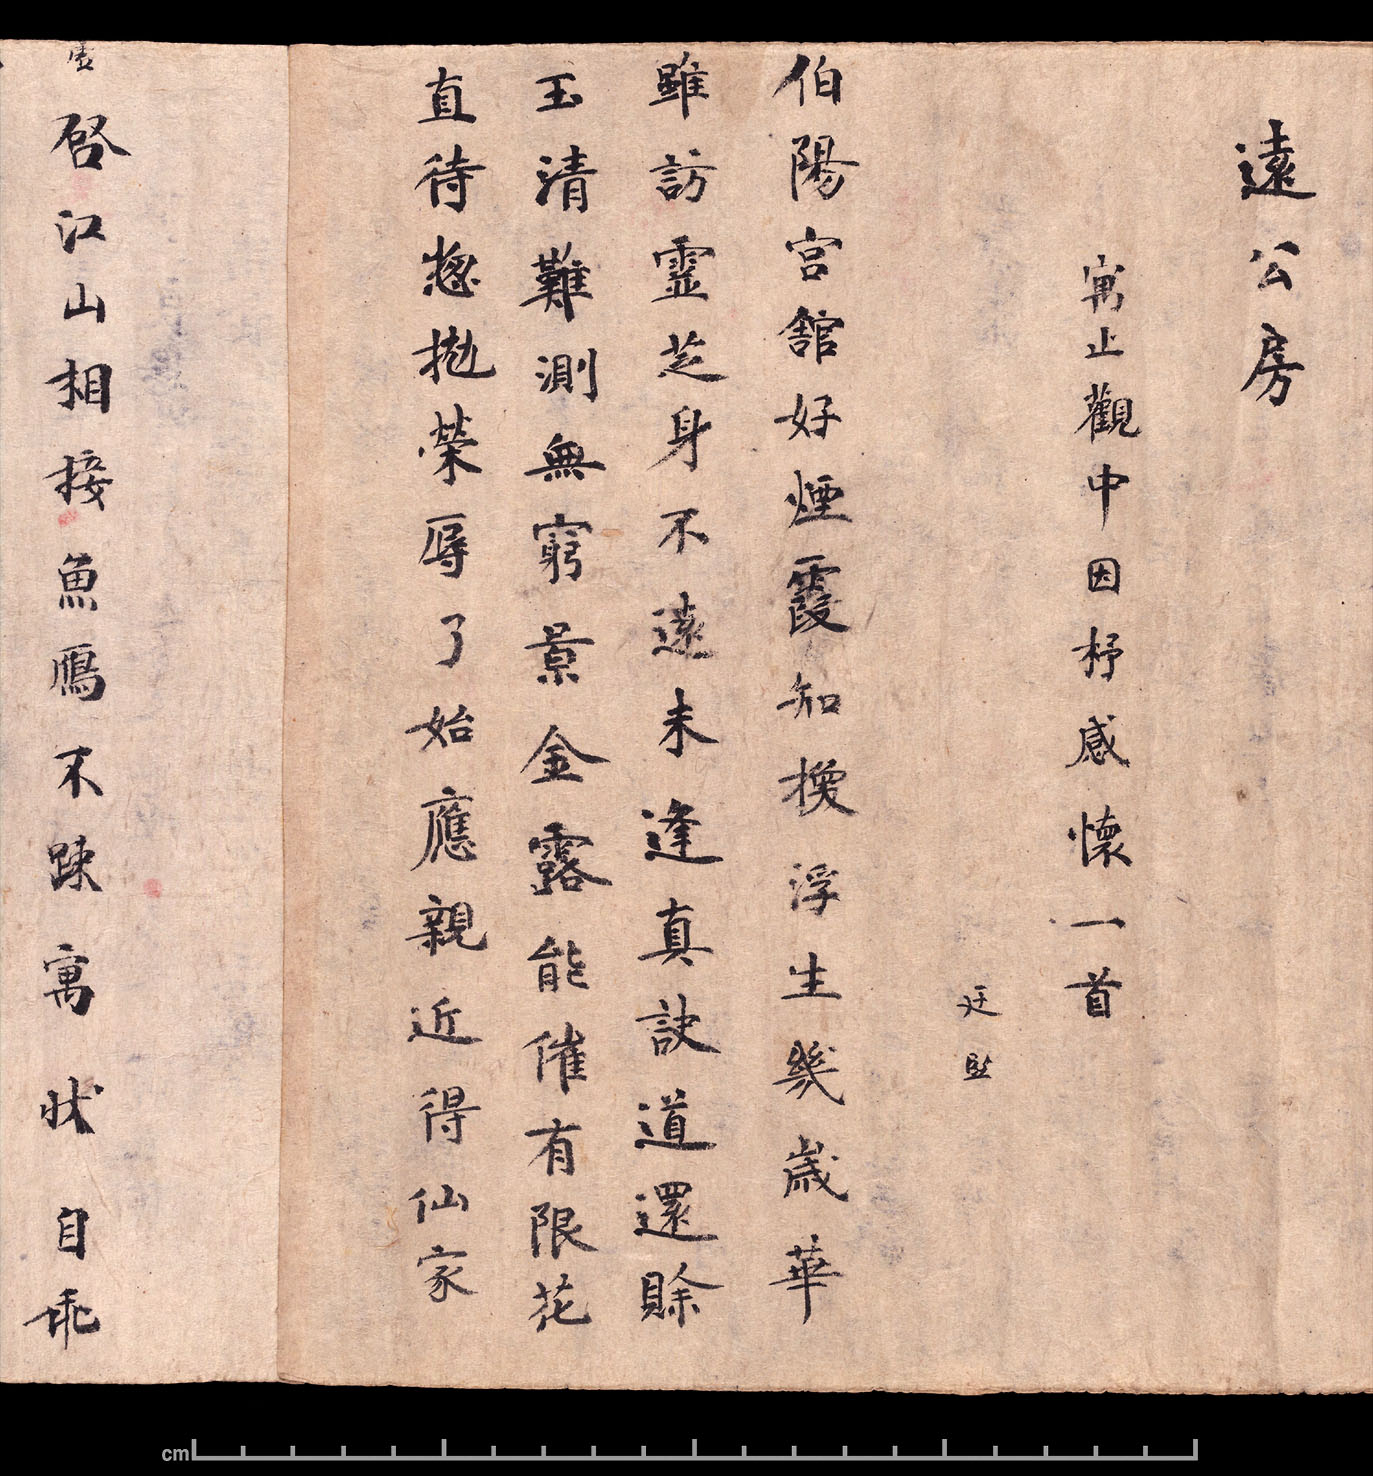 遠公房
寓止觀中因杼感懷一首
廷堅
伯陽宫舘好煙霞知換浮生幾歳華
雖訪靈芝身不遠未逢真訣道還賒
玉清難測無窮景金露能催有限花
直待惣拋榮辱了始應親近得仙家
啓江山相接魚鴈不踈寓狀自乖
cm